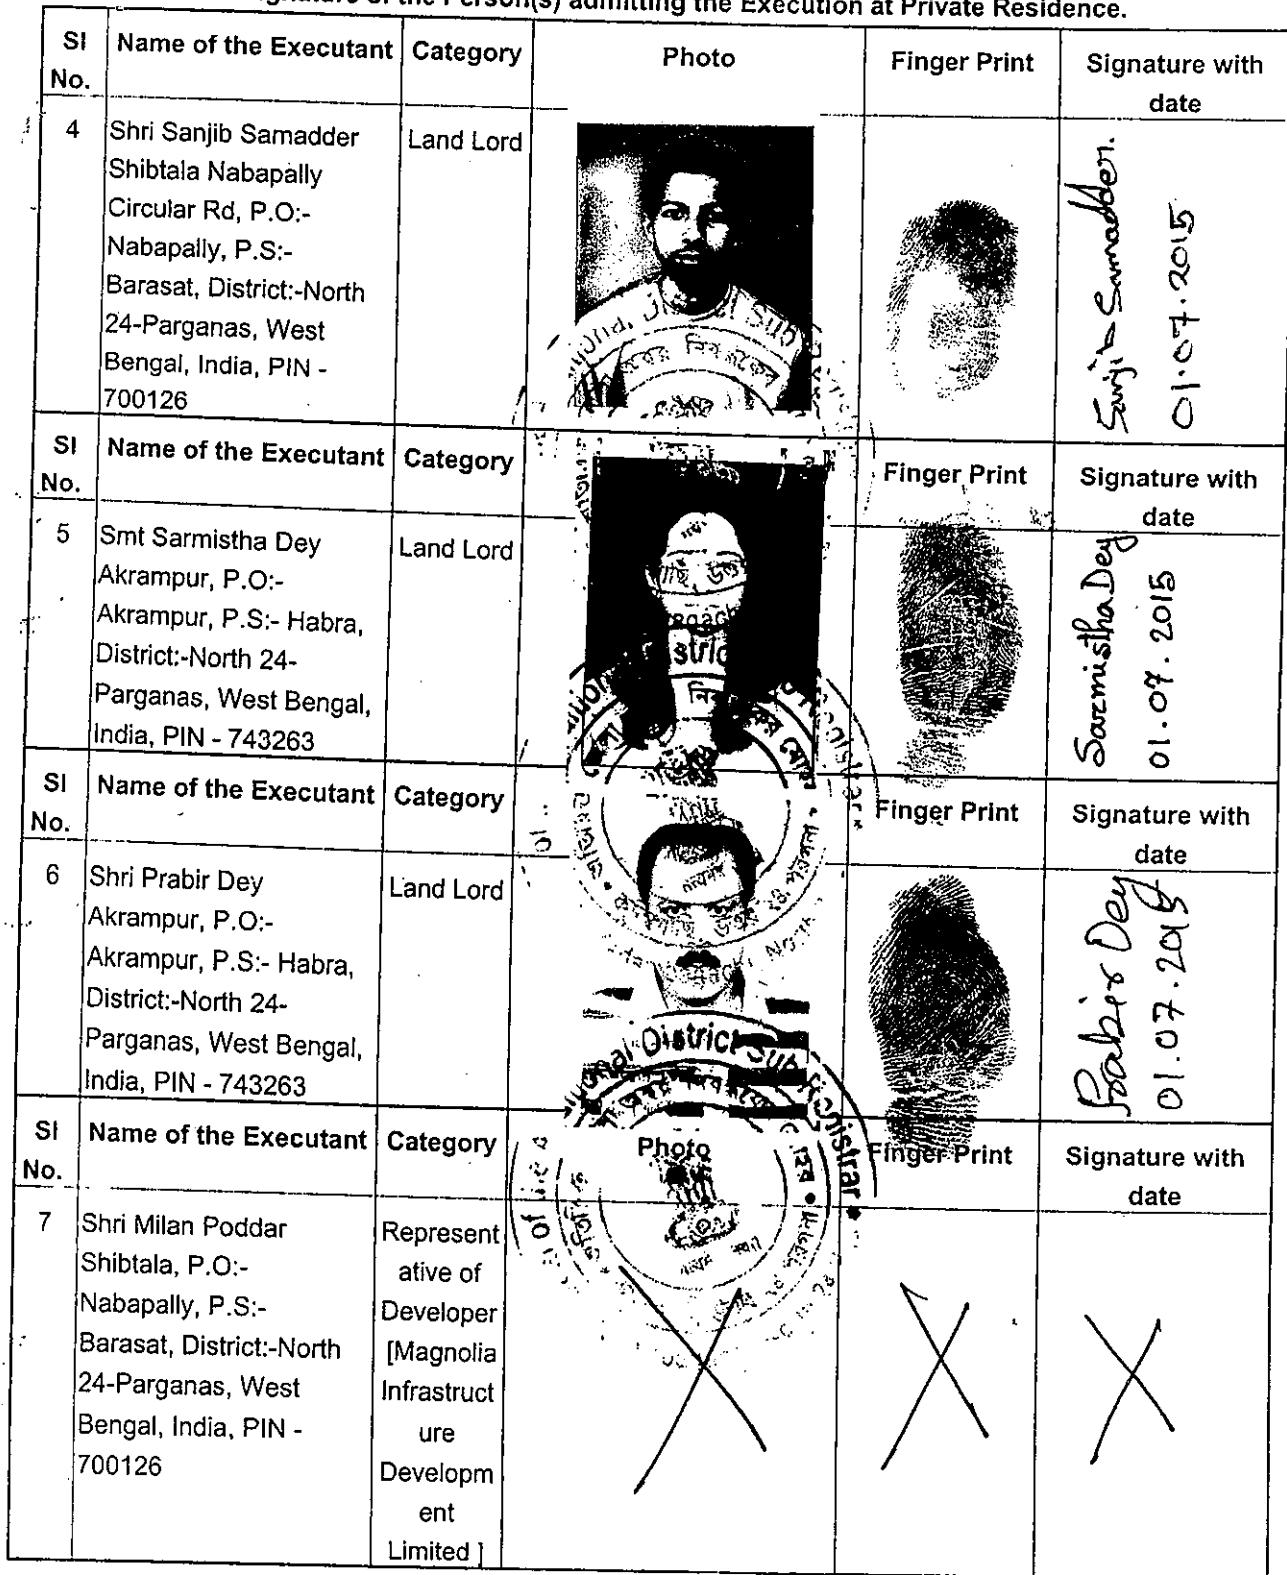 Signature of the Person(s) admitting the Execution at Private Residence.
SI No. Name of the Executant Category Photo Finger Print Signature with date
4 Shri Sanjib Samadder Land Lord
Shibtala Nabapally
Circular Rd, P.O:-
Nabapally, P.S:-
Barasat, District:-North
24-Parganas, West
Bengal, India, PIN -
700126
Sanjib Samadder.
01.07.2015
SI No. Name of the Executant Category Finger Print Signature with date
5 Smt Sarmistha Dey Land Lord
Akrampur, P.O:-
Akrampur, P.S:- Habra,
District:-North 24-
Parganas, West Bengal,
India, PIN - 743263
Sarmistha Dey
01.07.2015
SI No. Name of the Executant Category Finger Print Signature with date
6 Shri Prabir Dey Land Lord
Akrampur, P.O:-
Akrampur, P.S:- Habra,
District:-North 24-
Parganas, West Bengal,
India, PIN - 743263
Prabir Dey
01.07.2015
District Sub Registrar
SI No. Name of the Executant Category Photo Finger Print Signature with date
7 Shri Milan Poddar
Shibtala, P.O:-
Nabapally, P.S:-
Barasat, District:-North
24-Parganas, West
Bengal, India, PIN -
700126
Represent
ative of
Developer
[Magnolia
Infrastruct
ure
Developm
ent
Limited ]